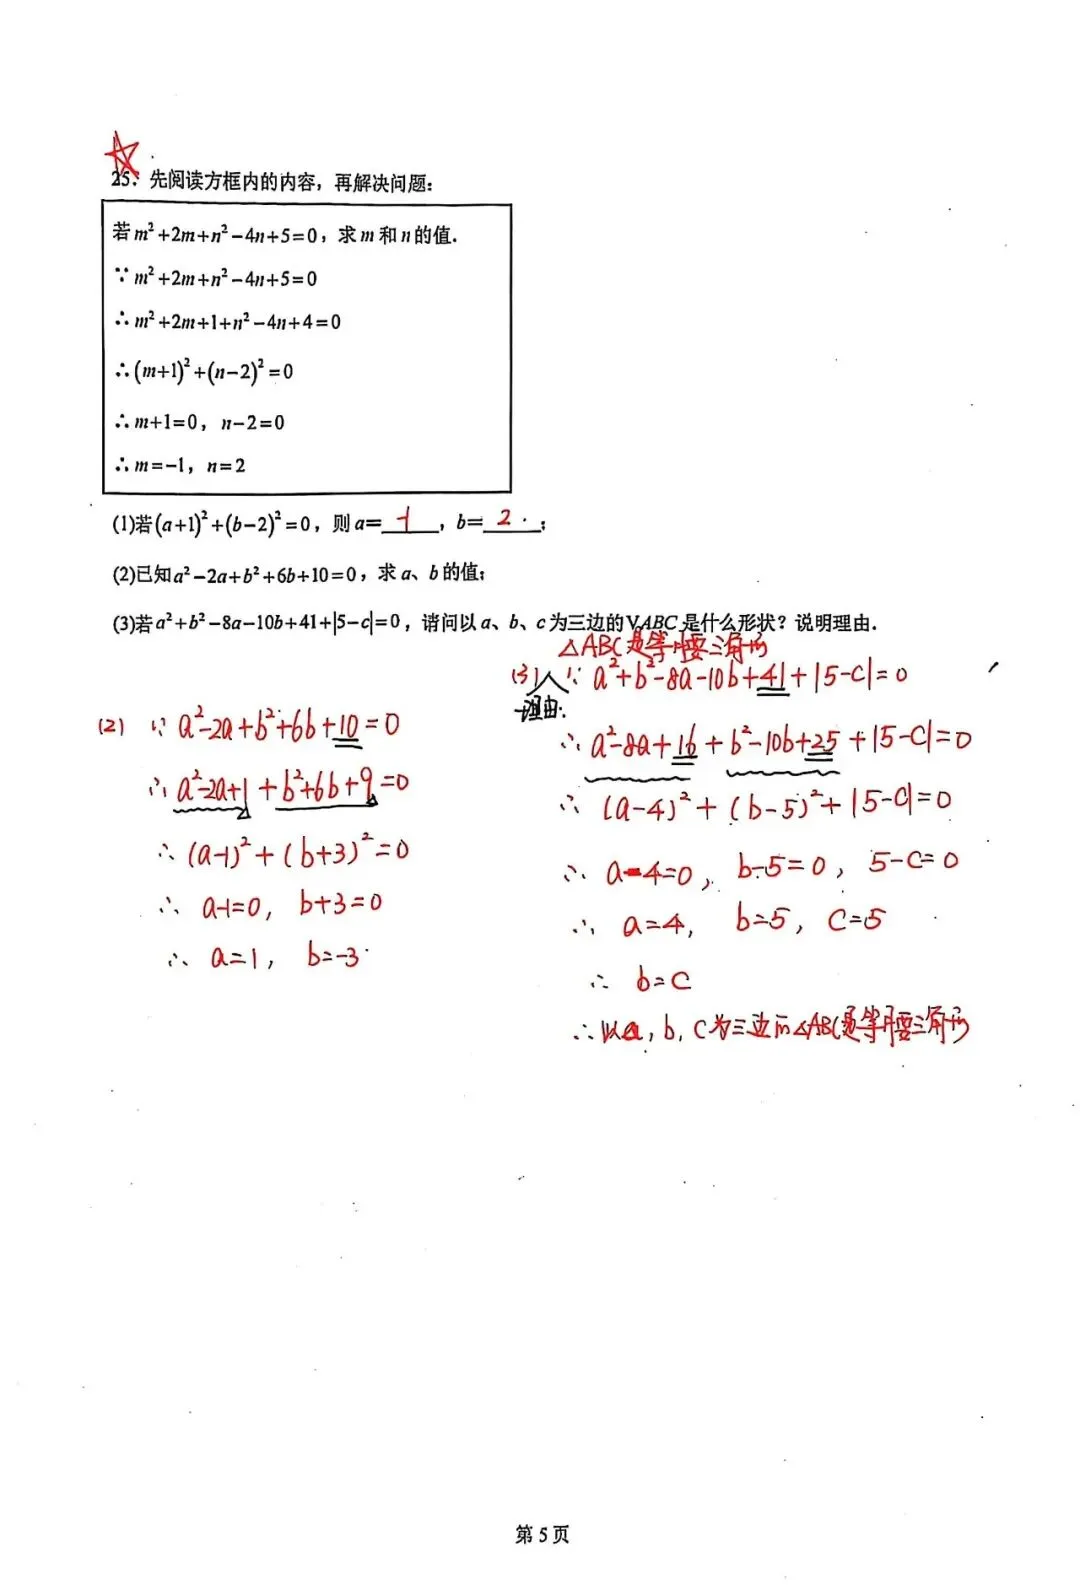 25. 先阅读方框内的内容，再解决问题：
若m²+2m+n²−4n+5=0，求m和n的值.
∵m²+2m+n²−4n+5=0
∴m²+2m+1+n²−4n+4=0
∴(m+1)²+(n−2)²=0
∴m+1=0，n−2=0
∴m=−1，n=2
(1)若(a+1)²+(b−2)²=0，则a=-1，b=2；
(2)已知a²−2a+b²+6b+10=0，求a、b的值；
(3)若a²+b²−8a−10b+41+|5−c|=0，请问以a、b、c为三边的VABC是什么形状？说明理由.
(2) ∵a²-2a+b²+6b+10=0
∴a²-2a+1+b²+6b+9=0
∴(a-1)²+(b+3)²=0
∴a-1=0, b+3=0
∴a=1, b=-3
△ABC是等腰三角形
(3) ∵a²+b²-8a-10b+41+|5-c|=0
理由:
∴a²-8a+16+b²-10b+25+|5-c|=0
∴(a-4)²+(b-5)²+|5-c|=0
∴a-4=0, b-5=0, 5-c=0
∴a=4, b=5, c=5
∴b=c
∴以a,b,c为三边的△ABC是等腰三角形
第5页